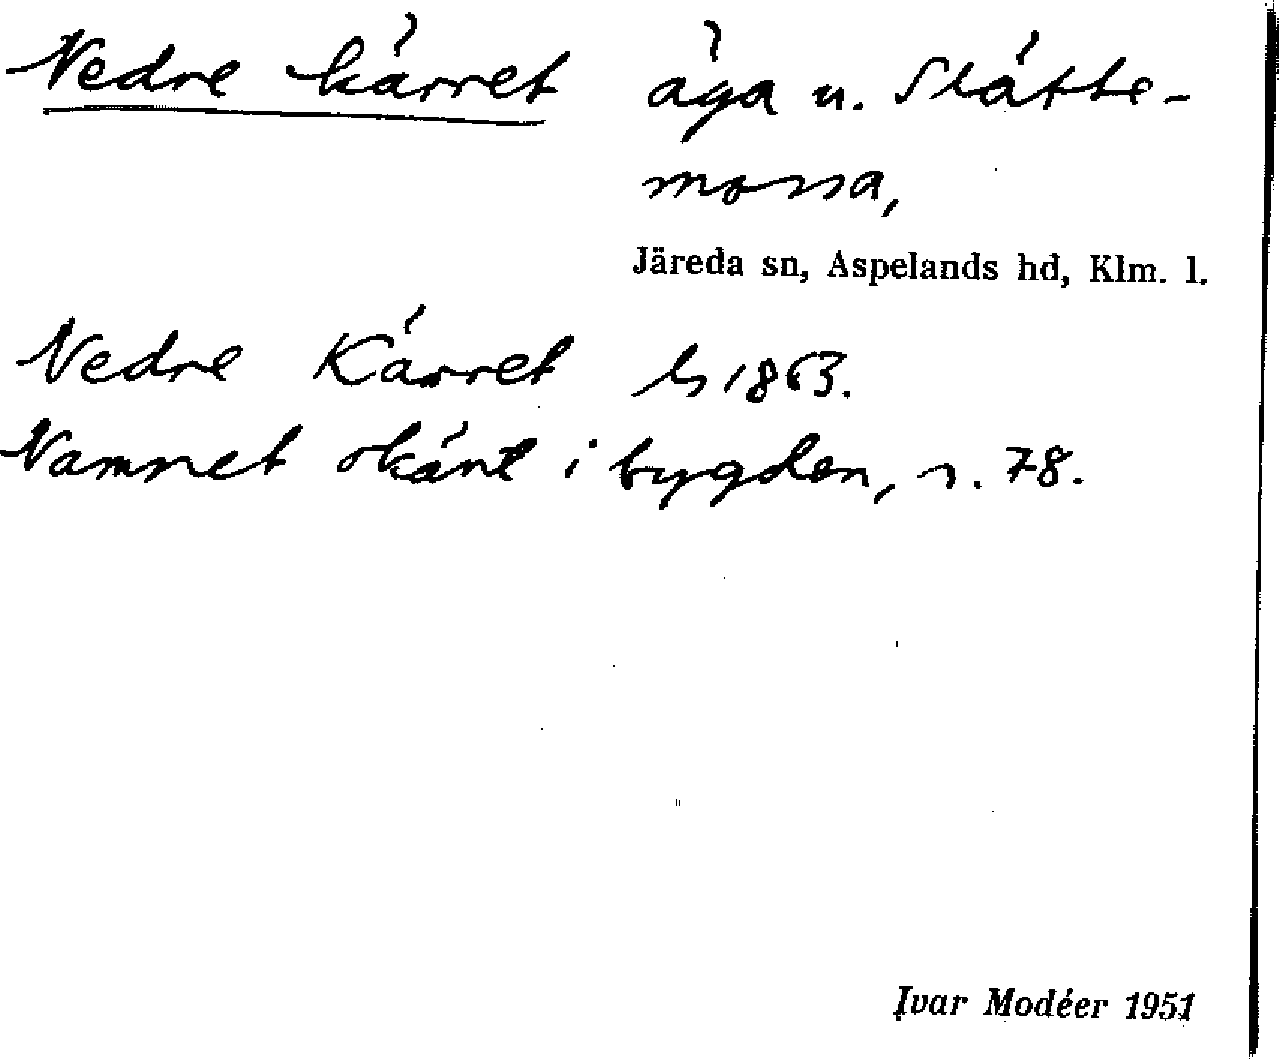 Nedre kärret äga u. Slätte-
mossa,
Järeda sn, Aspelands hd, Klm. l.
Nedre Kärret ls 1863.
Namnet okänt i bygden, s. 78.
Ivar Modéer 1951